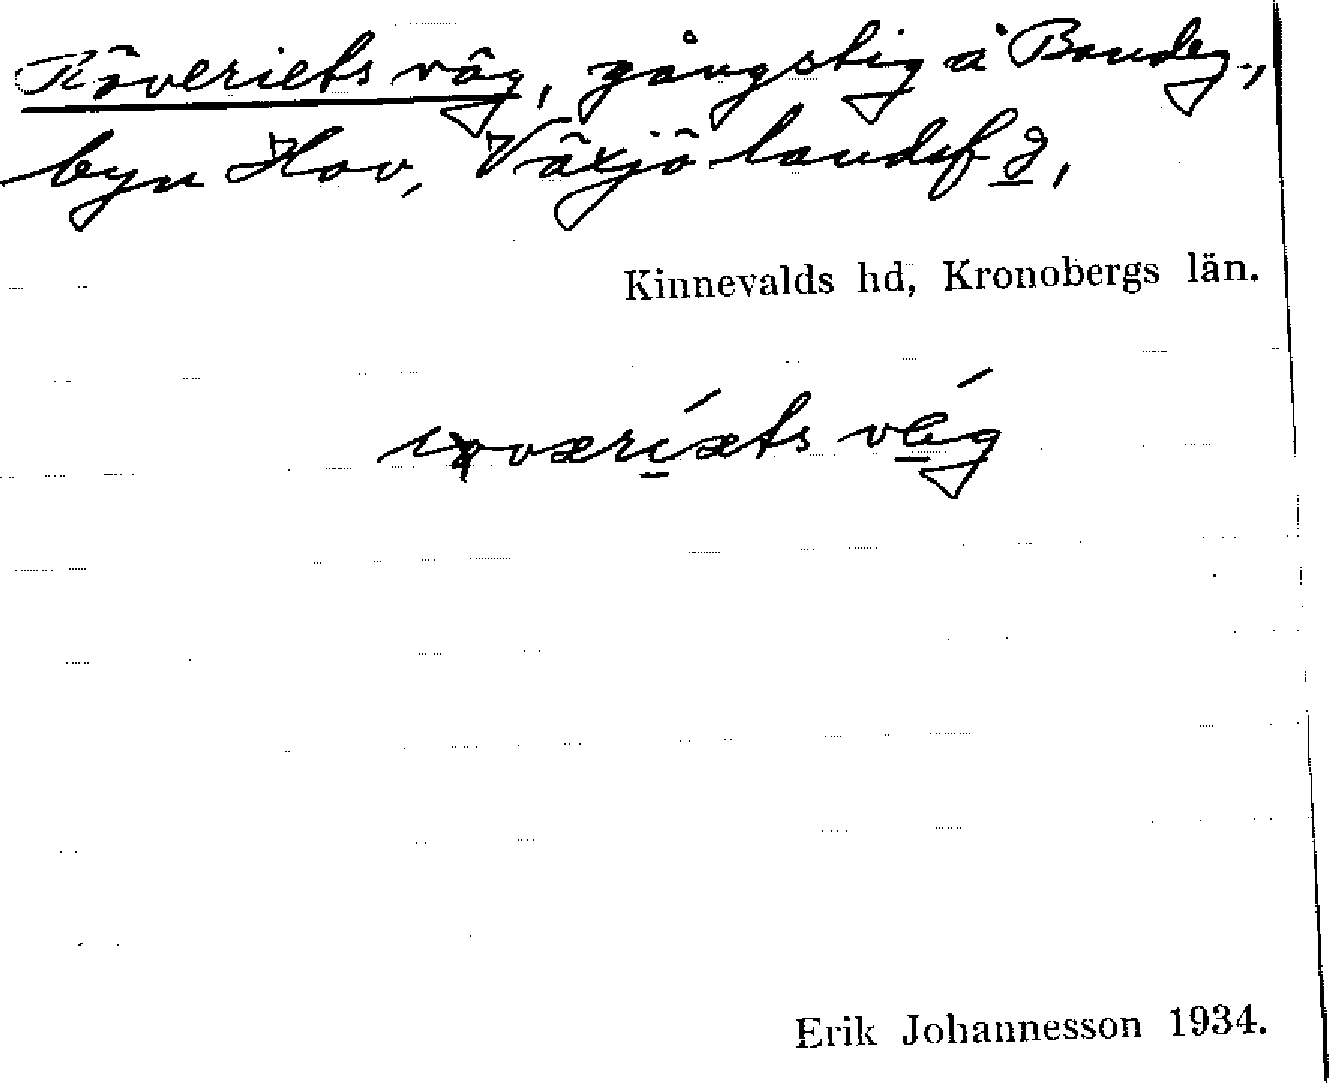 Röveriets väg, gångstig å Bondeg.,
byn Hov, Växjö landsf g,
Kinnevalds hd, Kronobergs län.
väg
Erik Johannesson 1934.